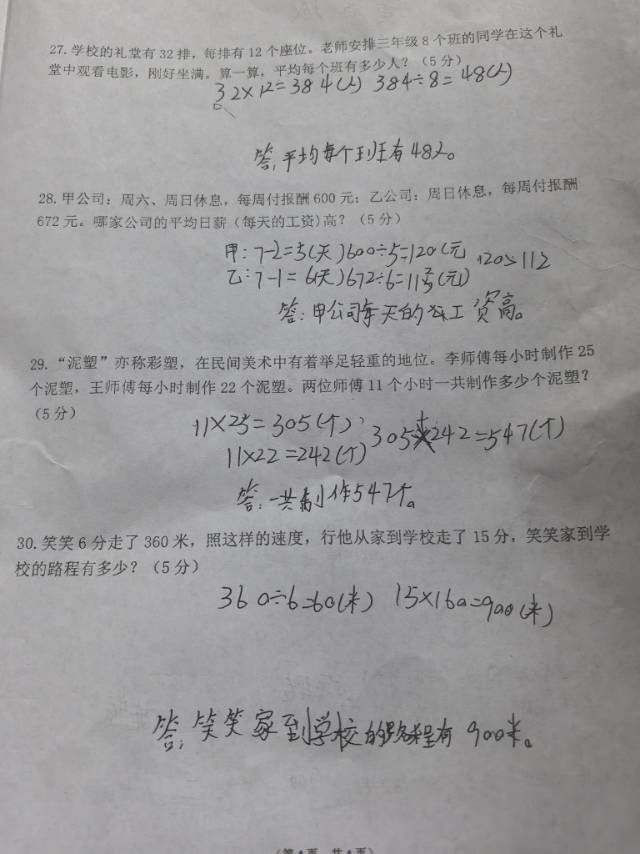 27. 学校的礼堂有 32 排，每排有 12 个座位。老师安排三年级 8 个班的同学在这个礼
堂中观看电影，刚好坐满。算一算，平均每个班有多少人？（5 分）
32×12=384(人) 384÷8=48(人)
答:平均每个班有48人。
28. 甲公司：周六、周日休息，每周付报酬 600 元；乙公司：周日休息，每周付报酬
672 元。哪家公司的平均日薪（每天的工资)高？（5 分）
甲:7-2=5(天)600÷5=120(元 120>112
乙:7-1=6(天)672÷6=112(元)
答:甲公司每天的工资高。
29. “泥塑”亦称彩塑，在民间美术中有着举足轻重的地位。李师傅每小时制作 25
个泥塑，王师傅每小时制作 22 个泥塑。两位师傅 11 个小时一共制作多少个泥塑？
（5 分）
11×25=305(个) 305+242=547(个)
11×22=242(个)
答:一共制作547个。
30. 笑笑 6 分走了 360 米，照这样的速度，行他从家到学校走了 15 分，笑笑家到学
校的路程有多少？（5 分）
360÷6=60(米) 15×160=900(米)
答:笑笑家到学校的路程有900米。